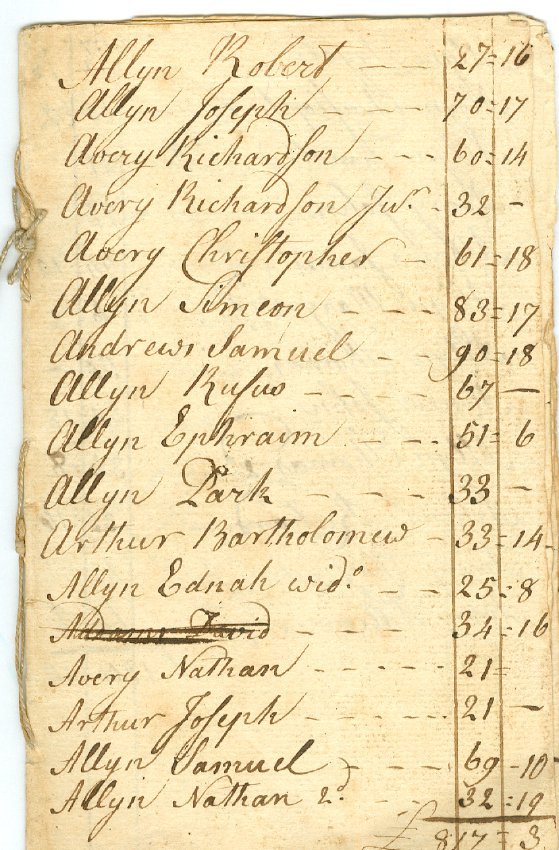 Allyn Robert — — 27=16
Allyn Joseph — — — 70=17
Avery Richardson — — - 60=14
Avery Richardson Junr - 32 -
Avery Christopher — 61=18
Allyn Simeon — — - 83=17
Andrews Samuel — - 90=18
Allyn Rufus - - - - - 67 —
Allyn Ephraim — — - - 51= 6
Allyn Park — — — - 33 -
Arthur Bartholomew - 33=14-
Allyn Ednah wido — - 25=8
Addams David - - - - - 34=16
Avery Nathan - - - - - - 21=
Arthur Joseph - - - - - - 21 —
Allyn Samuel - - - 69 -10-
Allyn Nathan 2d - - - 32=19
£ 817=3